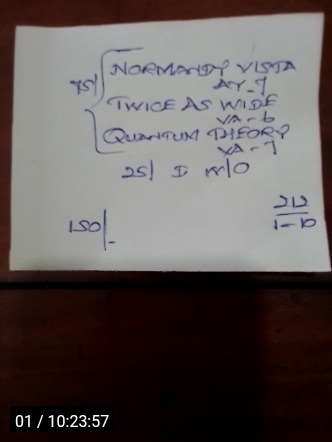 75/ NORMANDY VISTA
AY-7
TWICE AS WIDE
VA-6
QUANTUM THEORY
VA-7
25/ D W/O
212
150/- 1-10
01 / 10:23:57